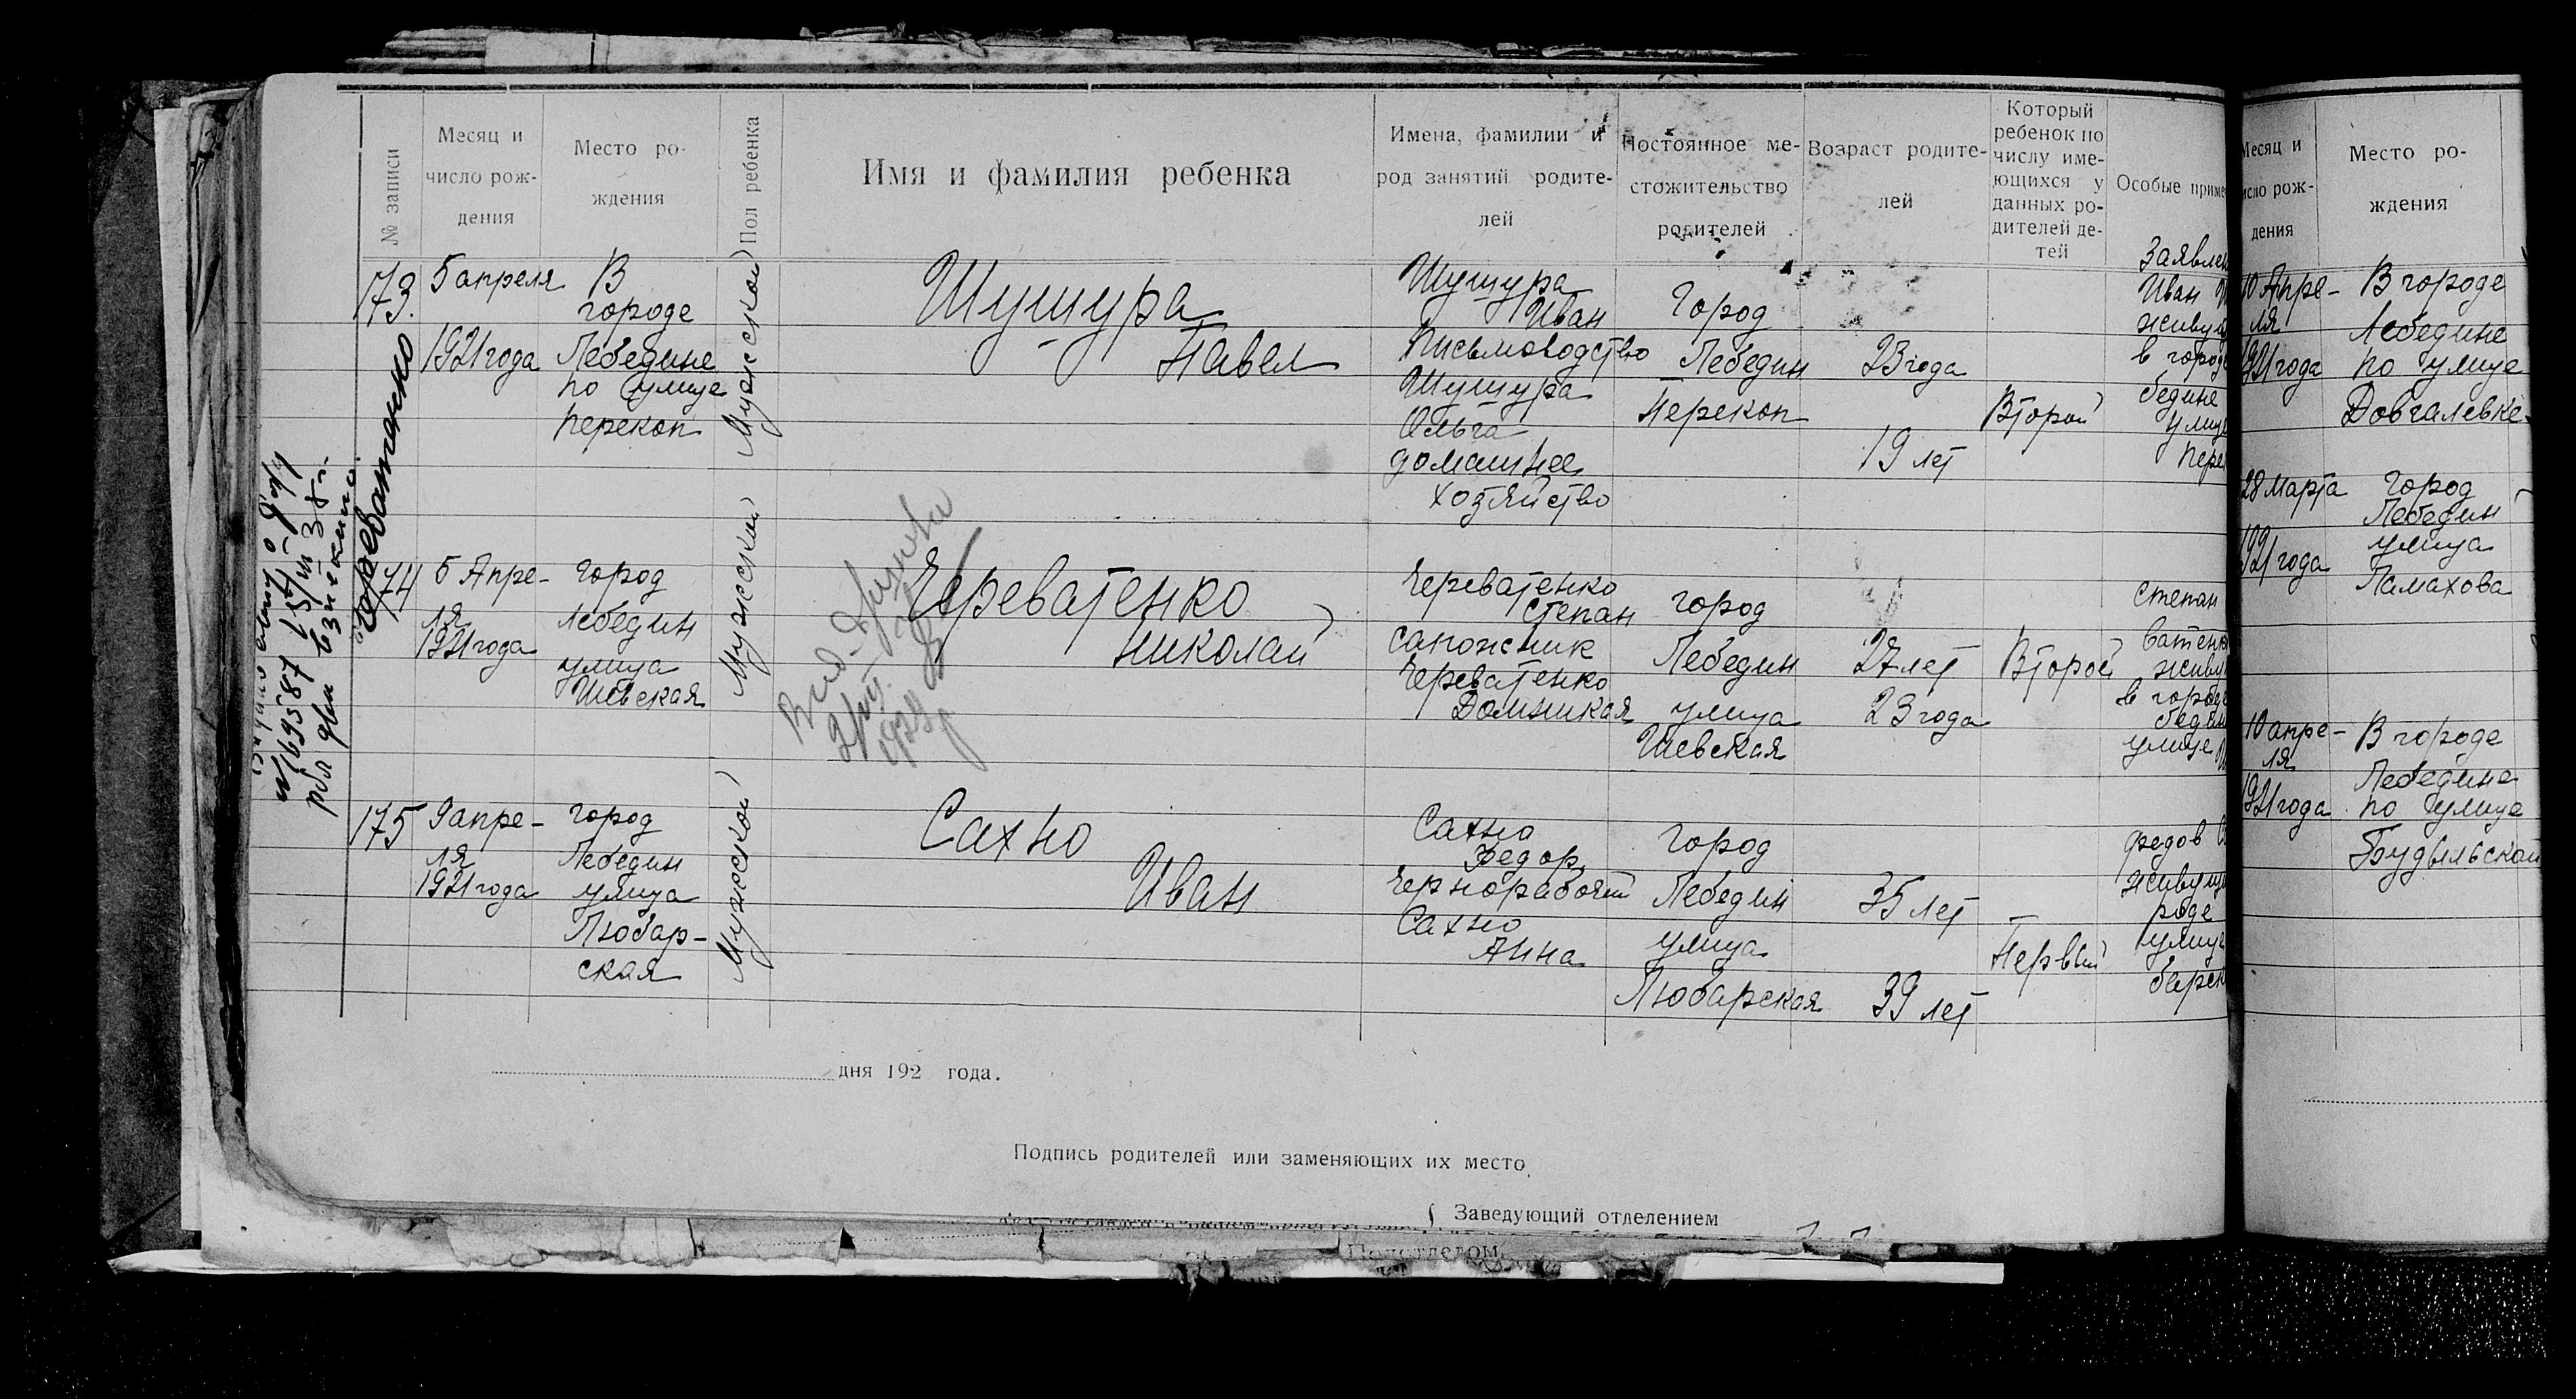 № записи
Месяц и
число рож-
дения
Место ро-
ждения
Пол ребенка
Имя и фамилия ребенка
Имена, фамилии и
род занятий родите-
лей
Постоянное ме-
стожительство
родителей
Возраст родите-
лей
Который
ребенок по
числу име-
ющихся у
данных ро-
дителей де-
тей
Особые приме
173.
5 апреля
1921 года
В
городе
Лебедине
по улице
Перекоп
Мужской
Шушура
Павел
Шушура
Иван
Письмоводство
Шушура
Ольга
домашнее
хозяйство
Город
Лебедин
Перекоп
23 года
19 лет
Второй
Заявлен
Иван
живу
в город
бедине
улице
Пере
Череватенко
174
5 Апре-
ля
1921 года
город
Лебедин
улица
Шевская
Мужской
Череватенко
Николай
Череватенко
Степан
сапожник
Череватенко
Домникая
город
Лебедин
улица
Шевская
27 лет
23 года
Второй
Степан
ватенк
живу
в городе
бедин
улице
175
9 апре-
ля
1921 года
город
Лебедин
улица
Любар-
ская
Мужской
Сахно
Иван
Сахно
Федор
Чернорабочий
Сахно
Анна
город
Лебедин
улица
Любарская
35 лет
39 лет
Первый
Федов
живущи
роде
улице
барск
дня 192 года.
Подпись родителей или заменяющих их место.
Заведующий отделением
Подотделом
Месяц и
исло рож-
дения
Место ро-
ждения
10 Апре-
ля
1921 года
В городе
Лебедине
по улице
Довгалевке
28 марта
1921 года
город
Лебедин
улица
Ламахова
10 апре-
ля
1921 года
В городе
Лебедине
по улице
Будыльской